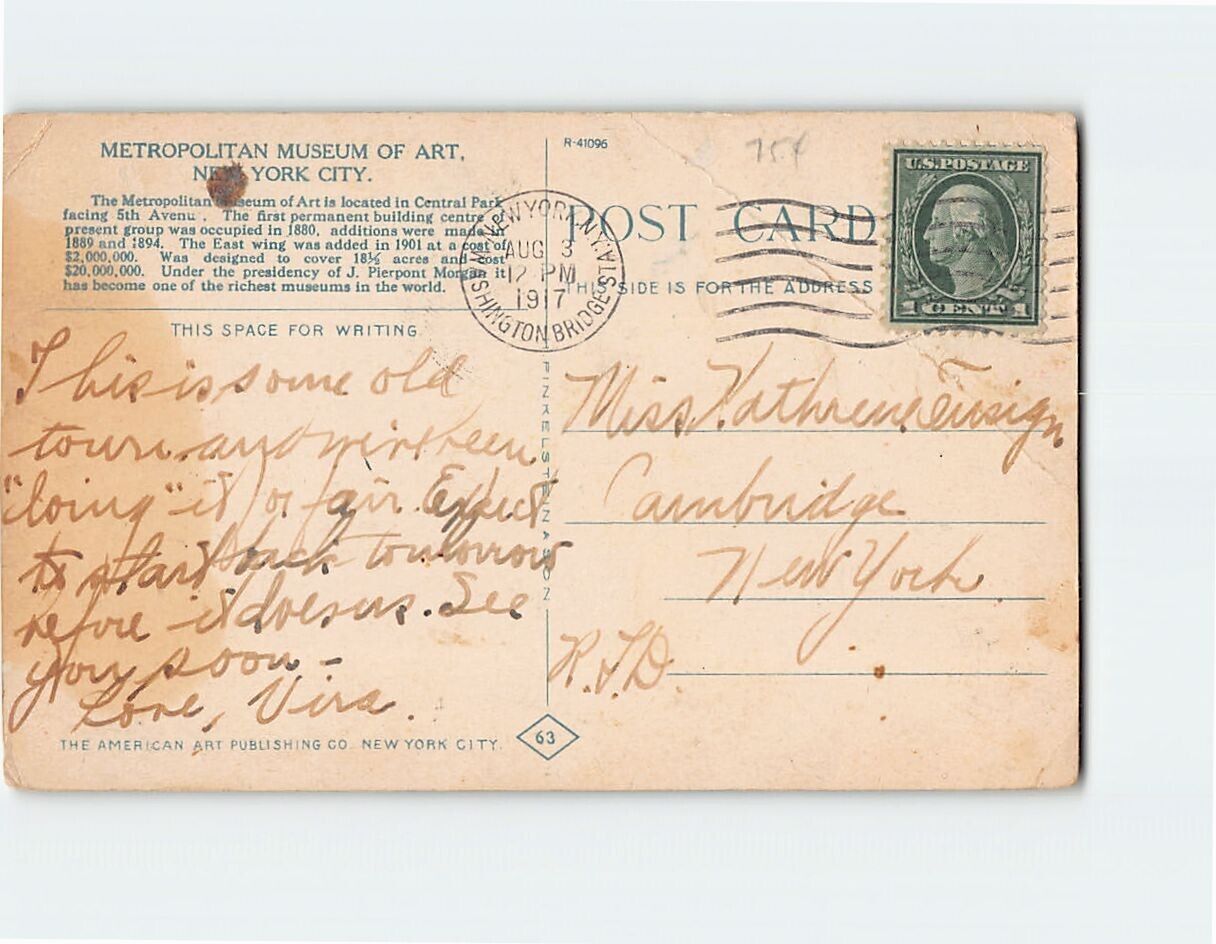 METROPOLITAN MUSEUM OF ART,
NEW YORK CITY.
The Metropolitan Museum of Art is located in Central Park
facing 5th Avenu . The first permanent building centre of
present group was occupied in 1880, additions were made
1889 and 1894. The East wing was added in 1901 at a cost of
$2,000,000. Was designed to cover 18½ acres and cost
$20,000,000. Under the presidency of J. Pierpont Morgan it
has become one of the richest museums in the world.
THIS SPACE FOR WRITING.
This is some old
town and we've been
"doing" it for fair. Expect
to start back tomorrow
before it doesus. See
you soon -
Love, Vira.
THE AMERICAN ART PUBLISHING CO. NEW YORK CITY.
63
FINKELSTEIN & SON
R-41096
75¢
POST CARD
THIS SIDE IS FOR THE ADDRESS
NEW YORK, N.Y.
WASHINGTON BRIDGE STA
AUG 3
12 PM
1917
U.S. POSTAGE
1 CENT 1
Miss Kathrene Ensign
Cambridge
New York.
R.F.D.